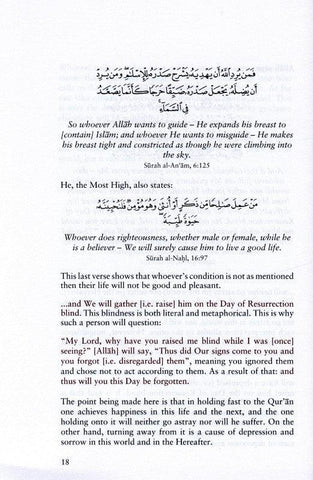 فَمَن يُرِدِ اللَّهُ أَن يَهْدِيَهُ يَشْرَحْ صَدْرَهُ لِلْإِسْلَامِ وَمَن يُرِدْ
أَن يُضِلَّهُ يَجْعَلْ صَدْرَهُ ضَيِّقًا حَرَجًا كَأَنَّمَا يَصَّعَّدُ
فِي السَّمَاءِ
So whoever Allāh wants to guide – He expands his breast to
[contain] Islām; and whoever He wants to misguide – He makes
his breast tight and constricted as though he were climbing into
the sky.
Sūrah al-An‘ām, 6:125
He, the Most High, also states:
مَنْ عَمِلَ صَالِحًا مِّن ذَكَرٍ أَوْ أُنثَىٰ وَهُوَ مُؤْمِنٌ فَلَنُحْيِيَنَّهُ
حَيَاةً طَيِّبَةً
Whoever does righteousness, whether male or female, while he
is a believer – We will surely cause him to live a good life.
Sūrah al-Naḥl, 16:97
This last verse shows that whoever's condition is not as mentioned
then their life will not be good and pleasant.
...and We will gather [i.e. raise] him on the Day of Resurrection
blind. This blindness is both literal and metaphorical. This is why
such a person will question:
“My Lord, why have you raised me blind while I was [once]
seeing?” [Allāh] will say, “Thus did Our signs come to you and
you forgot [i.e. disregarded] them”, meaning you ignored them
and chose not to act according to them. As a result of that: and
thus will you this Day be forgotten.
The point being made here is that in holding fast to the Qur’ān
one achieves happiness in this life and the next, and the one
holding onto it will neither go astray nor will he suffer. On the
other hand, turning away from it is a cause of depression and
sorrow in this world and in the Hereafter.
18